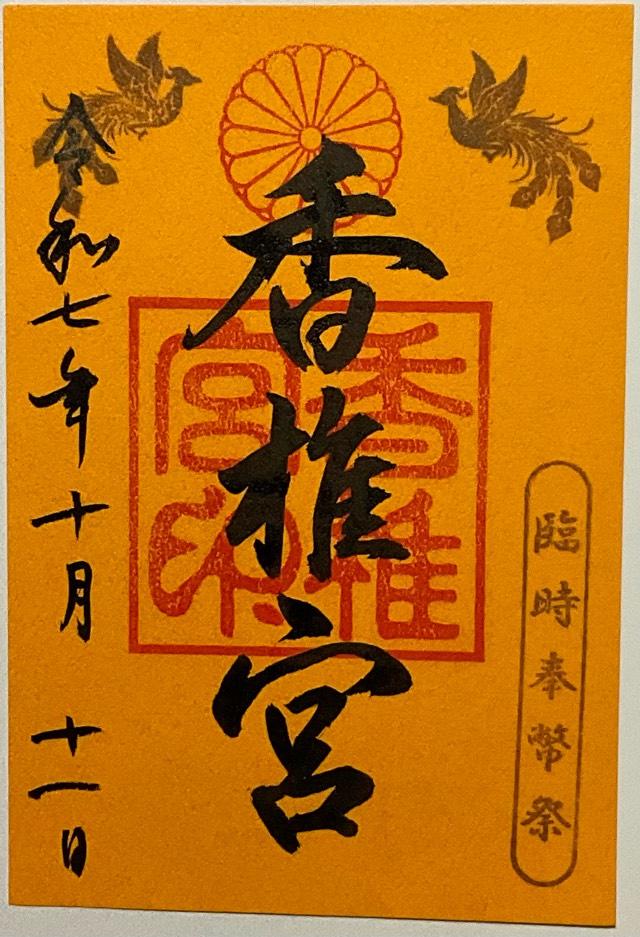 臨時奉幣祭
香椎宮
香椎宮印
令和七年十月 十一日